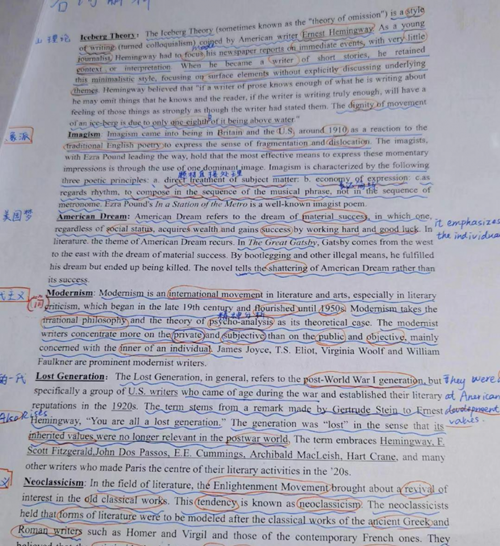 Iceberg Theory: The Iceberg Theory (sometimes known as the "theory of omission") is a style
of writing (turned colloquialism) coined by American writer Ernest Hemingway. As a young
journalist, Hemingway had to focus his newspaper reports on immediate events, with very little
context or interpretation. When he became a writer of short stories, he retained
this minimalistic style, focusing on surface elements without explicitly discussing underlying
themes. Hemingway believed that "if a writer of prose knows enough of what he is writing about
he may omit things that he knows and the reader, if the writer is writing truly enough, will have a
feeling of those things as strongly as though the writer had stated them. The dignity of movement
of an ice-berg is due to only one eighth of it being above water."
Imagism: Imagism came into being in Britain and the U.S. around 1910 as a reaction to the
traditional English poetry to express the sense of fragmentation and dislocation. The imagists,
with Ezra Pound leading the way, hold that the most effective means to express these momentary
impressions is through the use of one dominant image. Imagism is characterized by the following
three poetic principles: a. direct treatment of subject matter: b. economy of expression: c.as
regards rhythm, to compose in the sequence of the musical phrase, not in the sequence of
metronome. Ezra Pound's In a Station of the Metro is a well-known imagist poem.
美国梦 American Dream: American Dream refers to the dream of material success, in which one,
regardless of social status, acquires wealth and gains success by working hard and good luck. In it emphasizes
literature. the theme of American Dream recurs. In The Great Gatsby, Gatsby comes from the the individual
west to the east with the dream of material success. By bootlegging and other illegal means, he fulfilled
his dream but ended up being killed. The novel tells the shattering of American Dream rather than
its success.
Modernism: Modernism is an international movement in literature and arts, especially in literary
criticism, which began in the late 19th century and flourished until 1950s. Modernism takes the
irrational philosophy and the theory of psycho-analysis as its theoretical case. The modernist
writers concentrate more on the private and subjective than on the public and objective, mainly
concerned with the inner of an individual. James Joyce, T.S. Eliot, Virginia Woolf and William
Faulkner are prominent modernist writers.
Lost Generation: The Lost Generation, in general, refers to the post-World War I generation, but They were
specifically a group of U.S. writers who came of age during the war and established their literary at American
reputations in the 1920s. The term stems from a remark made by Gertrude Stein to Ernest development
Hemingway, "You are all a lost generation." The generation was "lost" in the sense that its values.
inherited values were no longer relevant in the postwar world. The term embraces Hemingway, F.
Scott Fitzgerald, John Dos Passos, E.E. Cummings, Archibald MacLeish, Hart Crane, and many
other writers who made Paris the centre of their literary activities in the '20s.
Neoclassicism: In the field of literature, the Enlightenment Movement brought about a revival of
interest in the old classical works. This tendency is known as neoclassicism. The neoclassicists
held that forms of literature were to be modeled after the classical works of the ancient Greek and
Roman writers such as Homer and Virgil and those of the contemporary French ones. They